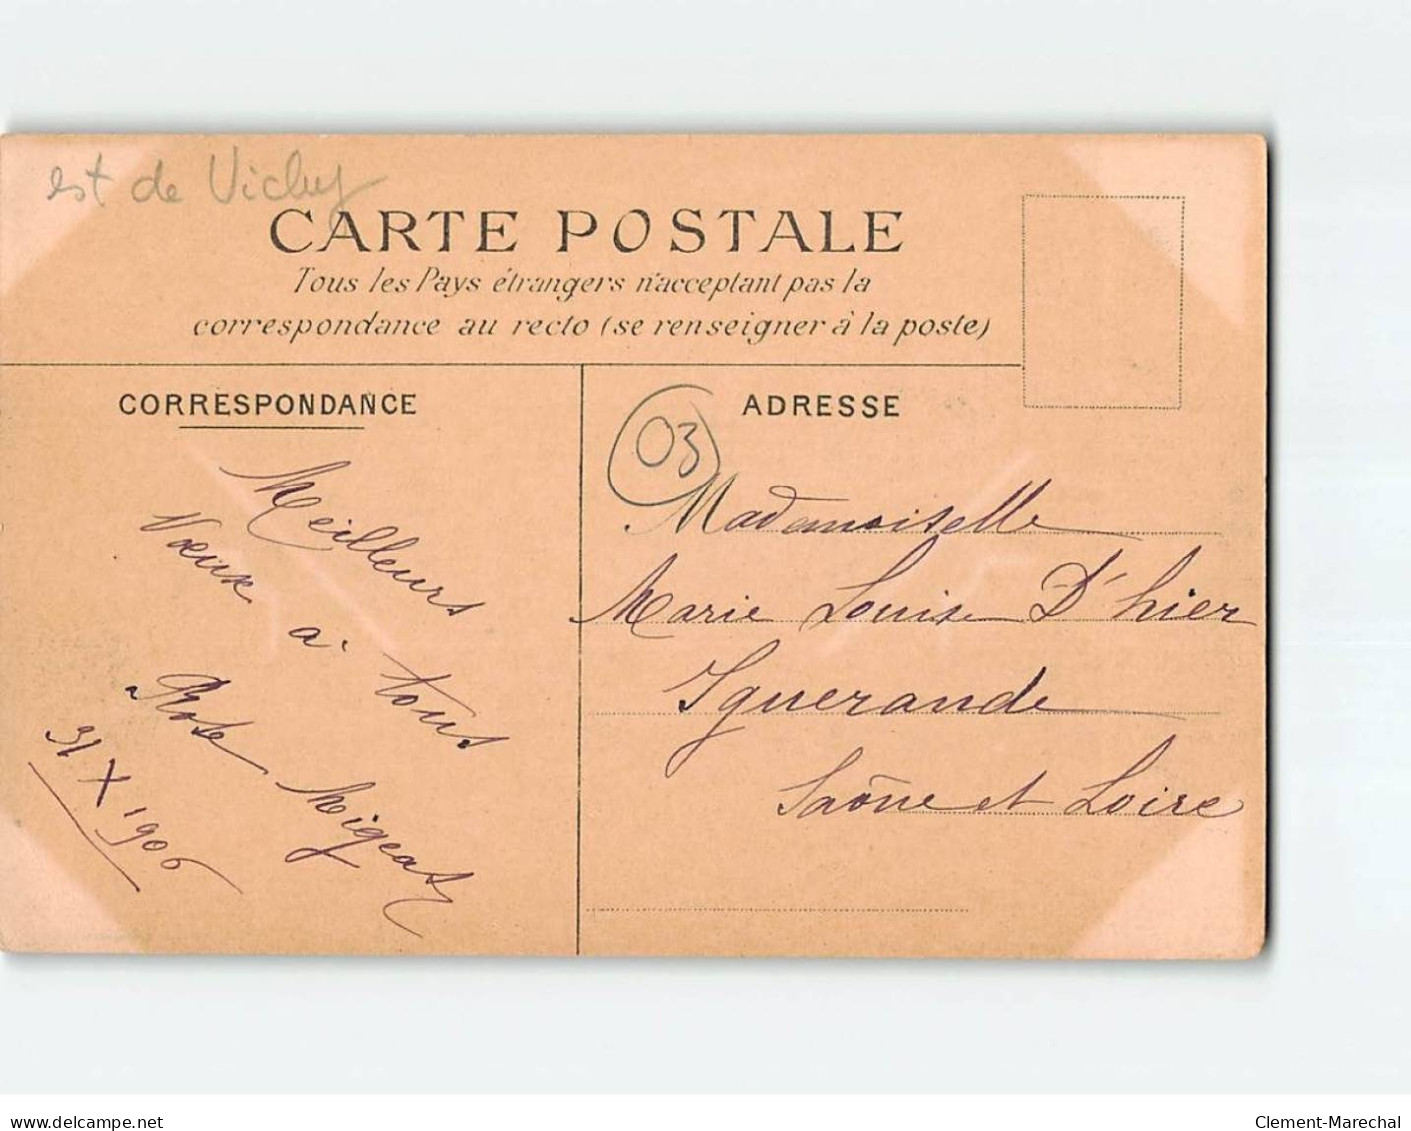 est de Vichy
CARTE POSTALE
Tous les Pays étrangers n'acceptant pas la
correspondance au recto (se renseigner à la poste)
CORRESPONDANCE
Meilleurs
Vœux
à tous
Rose Migeat
31 X 1906
ADRESSE
03
Mademoiselle
Marie Louise D'hier
Iguerande
Saône et Loire
delcampe.net
Clement-Marechal